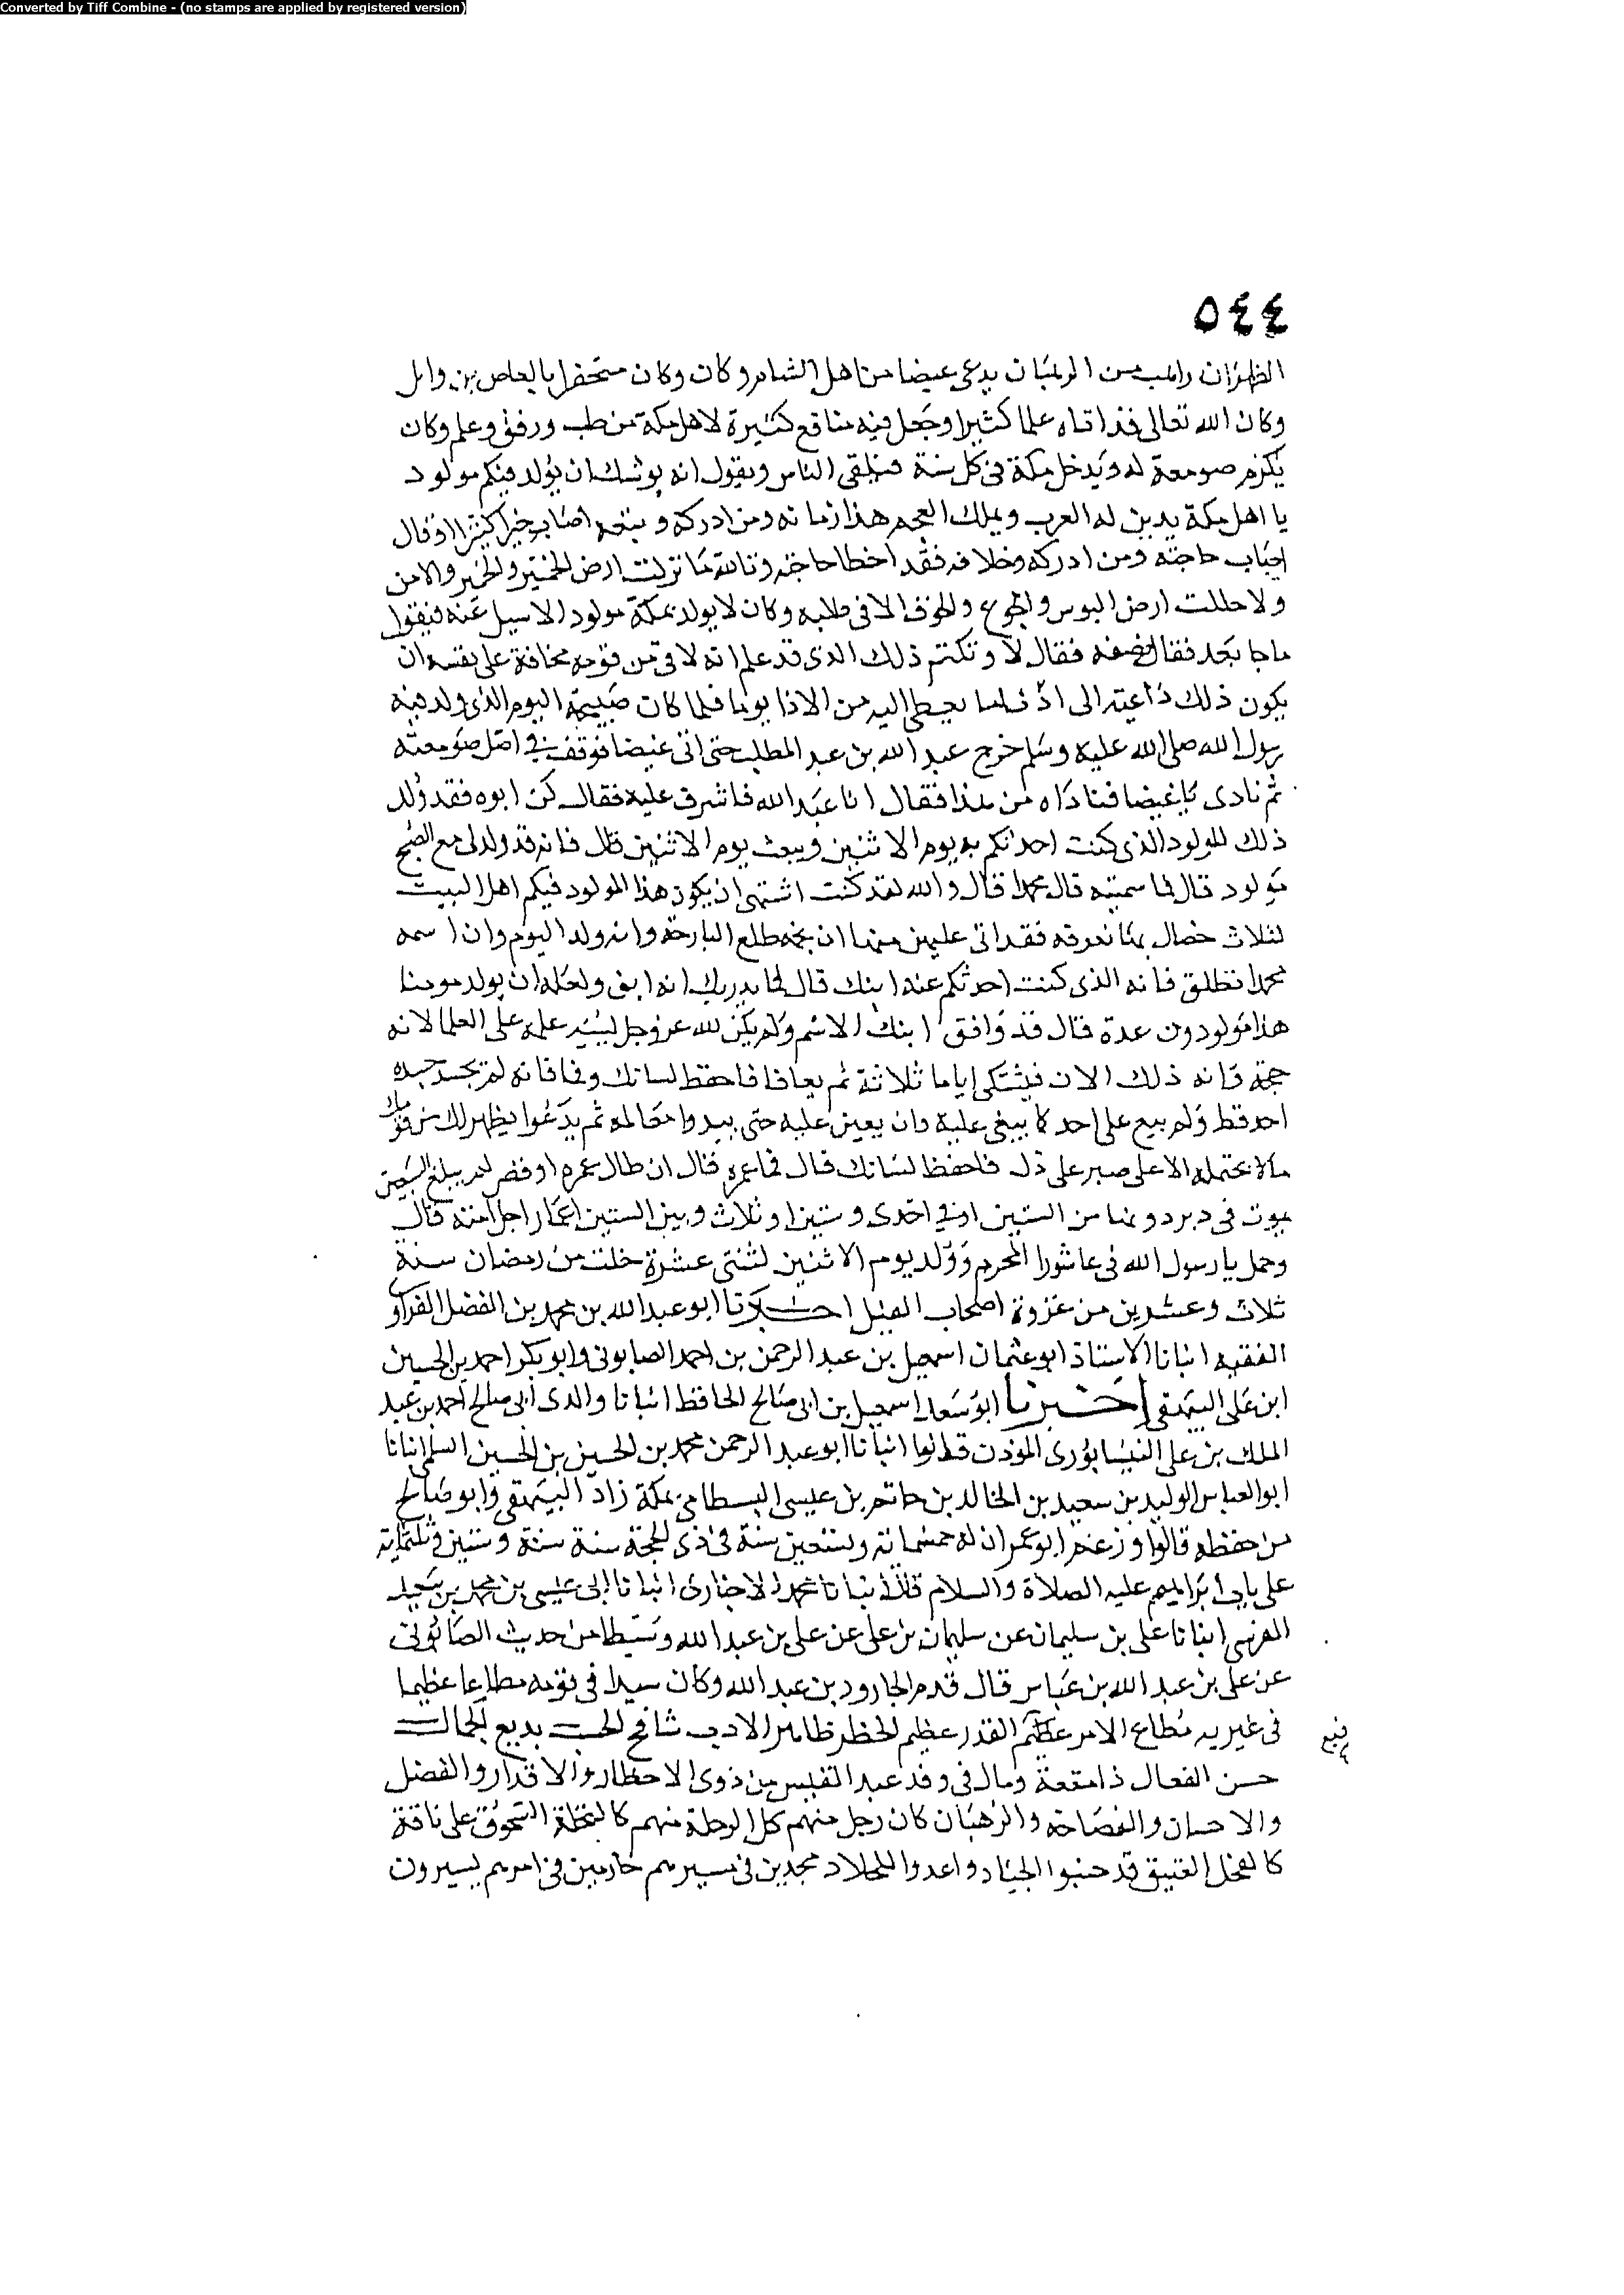 Converted by Tiff Combine - (no stamps are applied by registered version)
٥٤٤
الظهران راهب من الرهبان يدعى عيضا من اهل الشام وكان وكان متحفرا بالعاص بن وائل
وكان الله تعالى قد اتاه علما كثيرا وجعل فيه منافع كثيرة لاهل مكة من طب ورفق وعلم وكان
يلزم صومعة له ويدخل مكة في كل سنة فيلقى الناس ويقول انه يوشك ان يولد فيكم مولود
يا اهل مكة يدين له العرب ويملك العجم هذا زمانه ومن ادركه واتبعه اصاب خيرا كثيرا او قال
اصاب حاجته ومن ادركه وخلافه فقد اخطا حاجته وتالله ما تركت ارض الخمير والخير والامن
ولا حللت ارض البوس والجوع والخوف الا في طلبه وكان لا يولد بمكة مولود الا سيل عنه فيقول
ماجا بعد فقال فصفه فقال لا وتكتم ذلك الذي قد علم انه لاقى من قومه مخافة على نفسه ان
يكون ذلك داعية الى اذ من الاذا يوما فلما كان صبيحة اليوم الذي ولد فيه
رسول الله صلى الله عليه وسلم خرج عبد الله بن عبد المطلب حتى اتى عيضا فوقف في اصل صومعته
ثم نادى ياعيضا فناداه من هذا فقال انا عبد الله فاشرف عليه فقال كن ابوه فقد ولد
ذلك المولود الذي كنت احدثكم به يوم الاثنين ويبعث يوم الاثنين قال فانه قد ولد لى مع الصبح
مولود قال فما سميته قال محمدا قال والله لقد كنت اشتهى ان يكون هذا المولود فيكم اهل البيت
لثلاث خصال بها نعرفه فقد اتى عليهن منها ان نجمه طلع البارحة وانه ولد اليوم وان اسمه
محمد انطلق فانه الذي كنت احدثكم عنه ابنك قال فما يدريك انه ابني ولعله ان يولد يومنا
هذا مولود دون عدة قال قد وافق ابنك الاسم ولم يكن الله عز وجل ليشبه علمه على العلما لانه
حجة وانه ذلك الان فيشتكى اياما ثلاثة ثم يعافا فاحفظ لسانك وفا فانه لم يحسد حسده
احد قط ولم يبغ على احد كما يبغى عليه وان يعيش عليه حتى يبدوا مقاله ثم يدعوا يظهر لك من قومك
ما لا تحتمله الا على صبر على ذل فاحفظ لسانك قال فما عمره قال ان طال عمره او قصر لم يبلغ السبعين
يموت في دبر دونها من الستين او في احدى وستين او ثلاث وبين الستين اعمار اجل امته قال
وحمل يا رسول الله في عاشورا المحرم وولد يوم الاثنين لثنتي عشرة خلت من رمضان سنة
ثلاث وعشرين من غزوة اصحاب الفيل اخبرنا ابو عبد الله بن محمد بن الفضل الفراو
الفقيه انبانا الاستاذ ابو عثمان اسمعيل بن عبد الرحمن بن احمد الصابونى وابو بكر احمد بن الحسين
ابن على البيهقى اخبرنا ابو سعد اسمعيل بن ابى صالح الحافظ انبانا والدى ابى صالح احمد بن عبد
الملك بن على النيسابورى الموذن قالوا انبانا ابو عبد الرحمن محمد بن الحسين بن الحسين السلمى انبانا
ابو العباس الوليد بن سعيد بن الخالد بن حاتم بن عيسى البسطامى بمكة زاد البيهقى وابو صالح
من حفظه قالوا وزعم ابو عمران له خمسمائة وتسعين سنة في ذى الحجة سنة ستة وستين وثلثماية
على باب ابراهيم عليه الصلاة والسلام قال انبانا محمد الاخبارى انبانا ابى عيسى بن محمد بن سعيد
القرشى انبانا على بن سليمان عن سليمان بن على عن على بن عبد الله وسقط من حديث الصابونى
عن على بن عبد الله بن عباس قال قدم الجارود بن عبد الله وكان سيدا في قومه مطاعا عظيما
في عشيرته مطاع الامر عظيم القدر عظيم الخطر ظاهر الادب شافخ الحسب بديع الجمال
رفيع
حسن الفعال ذا متعة ومال في وفد عبد القيس من ذوى الاخطار والاقدار والفضل
والاحسان والفصاحة والرهبان كان رجل منهم كل الرحلة منهم كالنخلة السحوق على ناقة
كالفحل العتيق قد جنبوا الجياد واعدوا للجلاد مجدين في مسيرهم حازمين في امرهم يسيرون